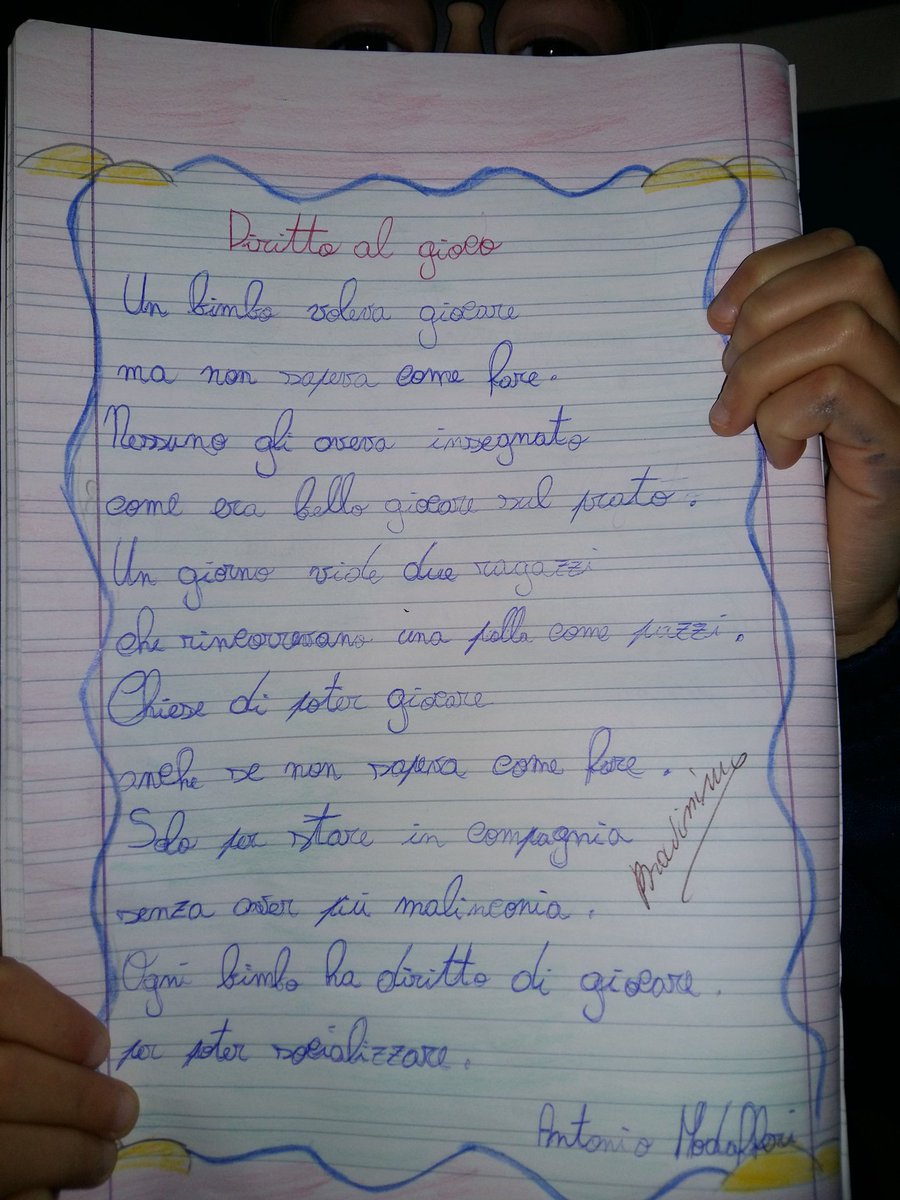 Diritto al gioco
Un bimbo voleva giocare
ma non sapeva come fare.
Nessuno gli aveva insegnato
come era bello giocare sul prato.
Un giorno vide due ragazzi
che rincorrevano una palla come pazzi.
Chiese di poter giocare
anche se non sapeva come fare.
Solo per stare in compagnia
senza aver più malinconia.
Bravissimo
Ogni bimbo ha diritto di giocare.
per poter socializzare.
Antonio Modafferi